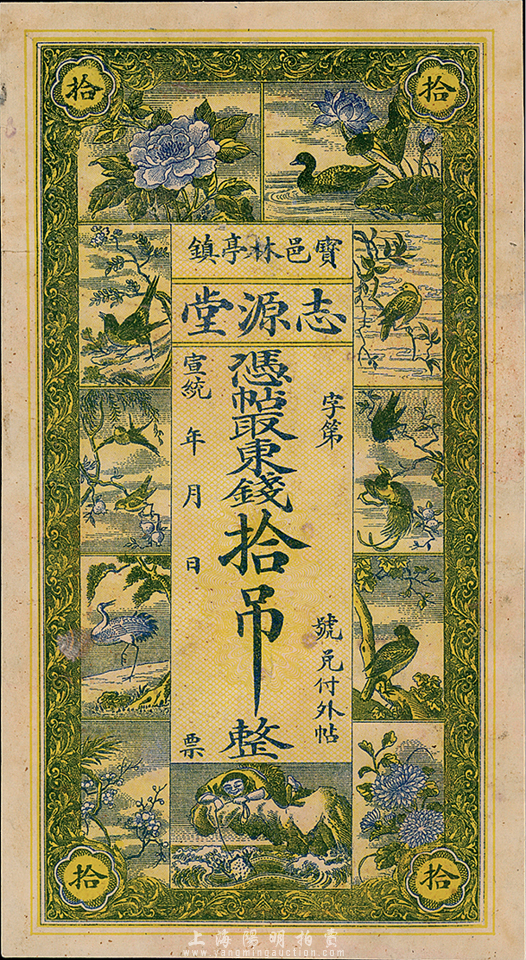 拾
拾
寳邑林亭鎮
志源堂
字第
號兑付外帖
憑帖取東錢拾吊整
宣統 年 月 日 票
拾
拾
上海陽明拍賣
www.yangmingauction.com